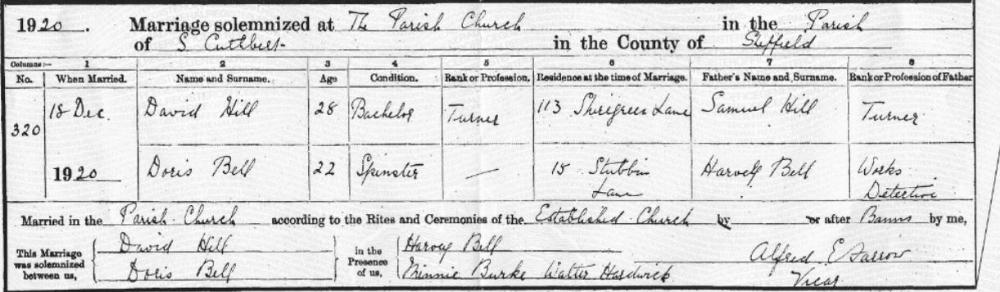 1920. Marriage solemnized at The Parish Church in the Parish
of S. Cuthbert in the County of Sheffield
Columns:— 1 2 3 4 5 6 7 8
No. When Married. Name and Surname. Age Condition. Rank or Profession. Residence at the time of Marriage. Father's Name and Surname. Rank or Profession of Father
320 18 Dec. David Hill 28 Bachelor Turner 113 Shiregreen Lane Samuel Hill Turner
1920 Doris Bell 22 Spinster — 15 Stubbin Lane Harvey Bell Works Detective
Married in the Parish Church according to the Rites and Ceremonies of the Established Church by or after Banns by me,
This Marriage was solemnized between us, David Hill Doris Bell in the Presence of us, Harvey Bell Minnie Burke Walter Hardwick Alfred E Farrow Vicar